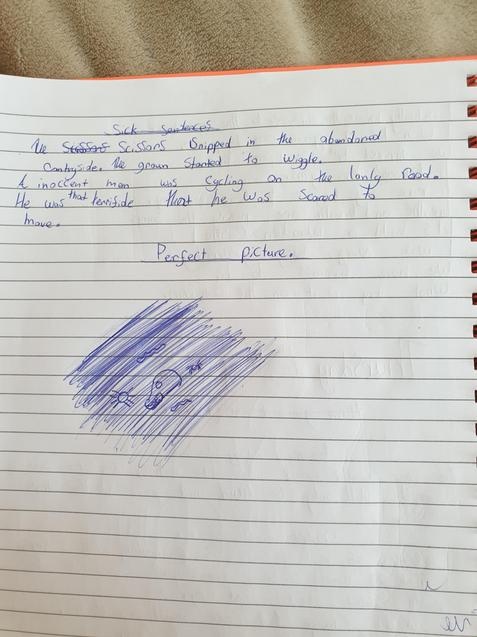 Sick sentences
The Scissors Snipped in the abandoned
Contryside. The groun Started to wiggle.
A inoccent man was Cycling on the lonly Road.
He was that terrifide that he was Scared to
move.
Perfect picture.